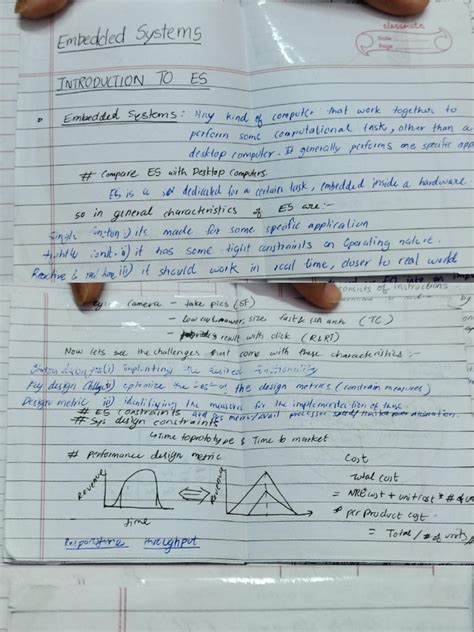 classmate
Date
Page
Embedded Systems
INTRODUCTION TO ES
Embedded Systems : Any kind of computer that work together to
perform some computational task, other than a
desktop computer. It generally performs one specific
# Compare ES with Desktop Computers.
ES is a dedicated for a certain task, embedded inside a hardware.
so in general characteristics of ES are:-
i) its made for some specific application
ii) it has some tight constraints on Operating nature.
Reactive & real time iii) it should work in real time, closer to real world
consists of instructions
camera - take pics (SF)
- power, size fast & (TC)
- result with click (R&RT)
Now lets see the challenges that come with these characteristics :-
i) implementing the desired functionality
Key design ii) optimize the of the design metrics (constrain measures)
Design metric iii) identifying the measures for the implementation of these
# ES constraints
# Sys design constraints
Time to prototype & Time to market
# Performance design metric
Cost
Total cost
= NRE cost + unit cost * # of
* per product cost
= Total / # of units
Revenue
time
Revenue
Response time throughput